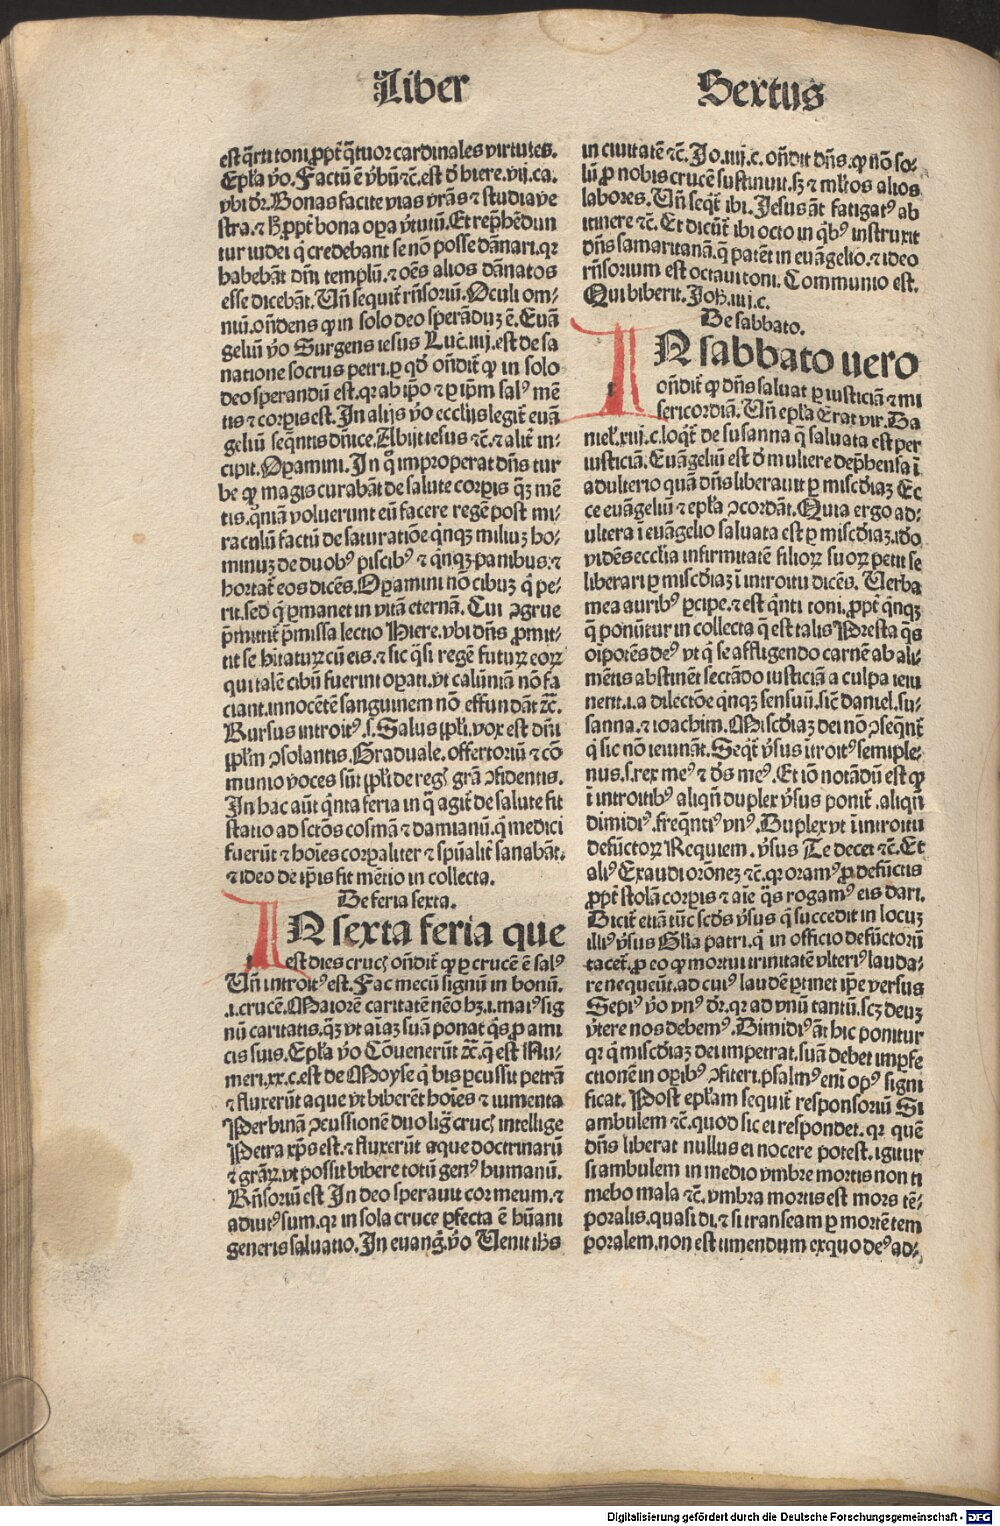 Liber
Sextus
est q̄rti toni.ꝓpt̄ q̄tuor cardinales virtutes.
Ep̄la v̊o.Factū ē v̊bū ⁊c.est d̓ hiere.vij.ca.
vbi dr̄.Bonas facite vias vr̄as ⁊ studia ve
stra.⁊ h̓ ꝓpt̄ bona oꝑa v̓tutū.Et rep̄hēdun
tur iudei q̇ credebant se nō posse dānari.qꝛ
habebāt dn̄i templū.⁊ oēs alios dānatos
esse dicebāt.Vn̄ sequit̄ rn̄soriū.Oculi om⸗
niū.on̄dens ꝙ in solo deo sperāduꝫ ē.Euā
geliū v̊o Surgens iesus Luc̄.iiij.est de sa
natione socrus petri.ꝑ qd̓ on̄dit̄ ꝙ in solo
deo sperandū est.qꝛ ab ip̄o ⁊ ꝑ ip̄m salꝰ mē
tis ⁊ corꝑis est.In alijs v̊o ecclijs legit̄ euā
geliū seq̄ntis dn̄ice.Abijt iesus ⁊c.⁊ alit̄ in⸗
cipit.Oꝑamini.In q̊ improperat dn̄s tur
be ꝙ magis curabāt de salute corꝑis q̄ꝫ mē
tis.qm̄iā voluerunt eū facere regē post mi⸗
raculū factū de saturatiōe qͥnqꝫ miliuꝫ ho⸗
minuꝫ de duobꝰ piscibꝰ ⁊ qͥnqꝫ panibus.⁊
hortat̄ eos dicēs.Oꝑamini nō cibuꝫ q̇ pe⸗
rit.sed q̇ ꝑmanet in vitā eternā.Cui ꝯgrue
p̄mittit̄ p̄missa lectio Hiere.vbi dn̄s ꝓmit⸗
tit se hītaturꝫ cū eis.⁊ sic q̄si regē futurꝫ eoꝝ
qui talē cibū fuerint oꝑati.vt calūniā nō fa
ciant.innocētē sanguinem nō effundāt ⁊c.
Rursus introitꝰ.s.Salus ppl̓i.vox est dn̄i
ppl̓m ꝯsolantis.Graduale.offertoriū ⁊ cō
munio voces sūt ppl̓i de regꝭ grā ꝯfidentis.
In hac aūt qͥnta feria in q̄ agit̄ de salute fit
statio ad sctōs cosmā ⁊ damianū.q̇ medici
fuerūt ⁊ hoīes corꝑaliter ⁊ spūalit̄ sanabāt.
⁊ ideo de ip̄is fit mētio in collecta.
De feria sexta.
IN sexta feria que
est dies crucꝭ on̄dit̄ ꝙ ꝑ crucē ē salꝰ
Vn̄ introitꝰ est.Fac mecū signū in bonū.
.i.crucē.Maiorē caritatē nēo hꝫ.i.maiꝰ sig
nū caritatis.q̄ꝫ vt aīaꝫ suā ponat q̇s ꝓ ami
cis suis.Ep̄la v̊o Cōuenerūt ⁊c.q̄ est Nu⸗
meri.xx.c.est de Moyse q̇ bis ꝑcussit petrā
⁊ fluxerūt aque vt biberēt hoīes ⁊ iumenta
Per binā ꝑcussionē duo liḡ crucꝭ intellige
Petra xp̄s est.⁊ fluxerūt aque doctrinarū
⁊ grārꝫ.vt possit bibere totū genꝰ humanū.
Rn̄soriū est In deo sperauit cor meum.⁊
adiutꝰ sum.qꝛ in sola cruce ꝑfecta ē hūani
generis saluatio.In euang̓.v̊o Uenit ih̄s
in ciuitatē ⁊c.Jo.iiij.c.on̄dit dn̄s.ꝙ nō so⸗
lū ꝓ nobis crucē sustinuit.sꝫ ⁊ ml̓tos alios
labores.Vn̄ seqͥt̄ ibi.Jesus āt fatigatꝰ ab
itinere ⁊c.Et dicūt̄ ibi octo in qͥbꝰ instruxit
dn̄s samaritanā.q̄ patēt in euāgelio.⁊ ideo
rn̄sorium est octaui toni.Communio est.
Qui biberit.Joh̓.iiij.c.
De sabbato.
IN sabbato uero
on̄dit̄ ꝙ dn̄s saluat ꝑ iusticiā ⁊ mi
sericordiā.Vn̄ ep̄la Erat vir.Da
niel̓.xiij.c.loqͥt̄ de susanna q̄ saluata est per
iusticiā.Euāgeliū est d̓ muliere dep̄hensa ī
adulterio quā dn̄s liberauit ꝑ mis̄cdiaꝫ Ec
ce euāgeliū ⁊ ep̄la ꝯcordāt.Quia ergo ad⸗
ultera ī euāgelio saluata est ꝑ mis̄cdiaꝫ.iōo
vidēs ecclīa infirmitatē filioꝝ suoꝝ petit se
liberari ꝑ mis̄cdiaꝫ ī introitu dicēs. Uerba
mea auribꝰ ꝑcipe.⁊ est qͥnti toni.ꝓpt̄ qͥnqꝫ
q̄ ponūtur in collecta q̄ est talis Presta q̄s
oīpotēs deꝰ vt q̇ se affligendo carnē ab ali⸗
mētis abstinēt sectādo iusticiā a culpa ieiu
nent.i.a dilectōe qͥnqꝫ sensuū.sic̄ daniel.su⸗
sanna.⁊ ioachim.Mis̄cdiaꝫ dei nō ꝯseqͥnt̄
q̇ sic nō ieiunāt.Seqͥt̄ v̓sus ītroitꝰ semiple⸗
nus.s.rex meꝰ ⁊ ds̄ meꝰ.Et iō notādū est ꝙ
ī introitibꝰ aliqn̄ duplex v̓sus ponit̄.aliqn̄
dimidiꝰ.freq̄ntiꝰ vnꝰ.Duplex vt ī introitu
defūctoꝝ Requiem.v̓sus Te decet ⁊c.Et
aliꝰ Exaudi orōneꝫ ⁊c.qꝛ oramꝰ ꝓ defūctis
ꝓpt̄ stolā corꝑis ⁊ aīe q̄s rogamꝰ eis dari.
Dicit̄ etiā tūc scds̄ v̓sus q̇ succedit in locuꝫ
illiꝰ v̓sus Glīa patri.q̇ in officio defūctorū
tacet̄.ꝓ eo ꝙ mortui trinitatē vlteriꝰ lauda⸗
re nequeūt.ad cuiꝰ laudē ꝑtinet ip̄e versus
Sepiꝰ v̊o vnꝰ dr̄.qꝛ ad vnū tantū.scꝫ deuꝫ
v̓tere nos debemꝰ.Dimidiꝰ āt hic ponitur
qꝛ q̇ mis̄cdiaꝫ dei impetrat.suā debet imꝑfe
ctionē in oꝑibꝰ ꝯfiteri.psalmꝰ enī opꝰ signi
ficat. Post ep̄lam sequit̄ responsoriū Si
ambulem ⁊c.quod sic ei respondet.qꝛ quē
dn̄s liberat nullus ei nocere potest.igitur
si ambulem in medio vmbre mortis non ti
mebo mala ⁊c.vmbra mortis est mors tē⸗
poralis.quasi di.⁊ si transeam ꝑ mortē tem
poralem.non est timendum exquo deꝰ ad⸗
Digitalisierung gefördert durch die Deutsche Forschungsgemeinschaft - DFG